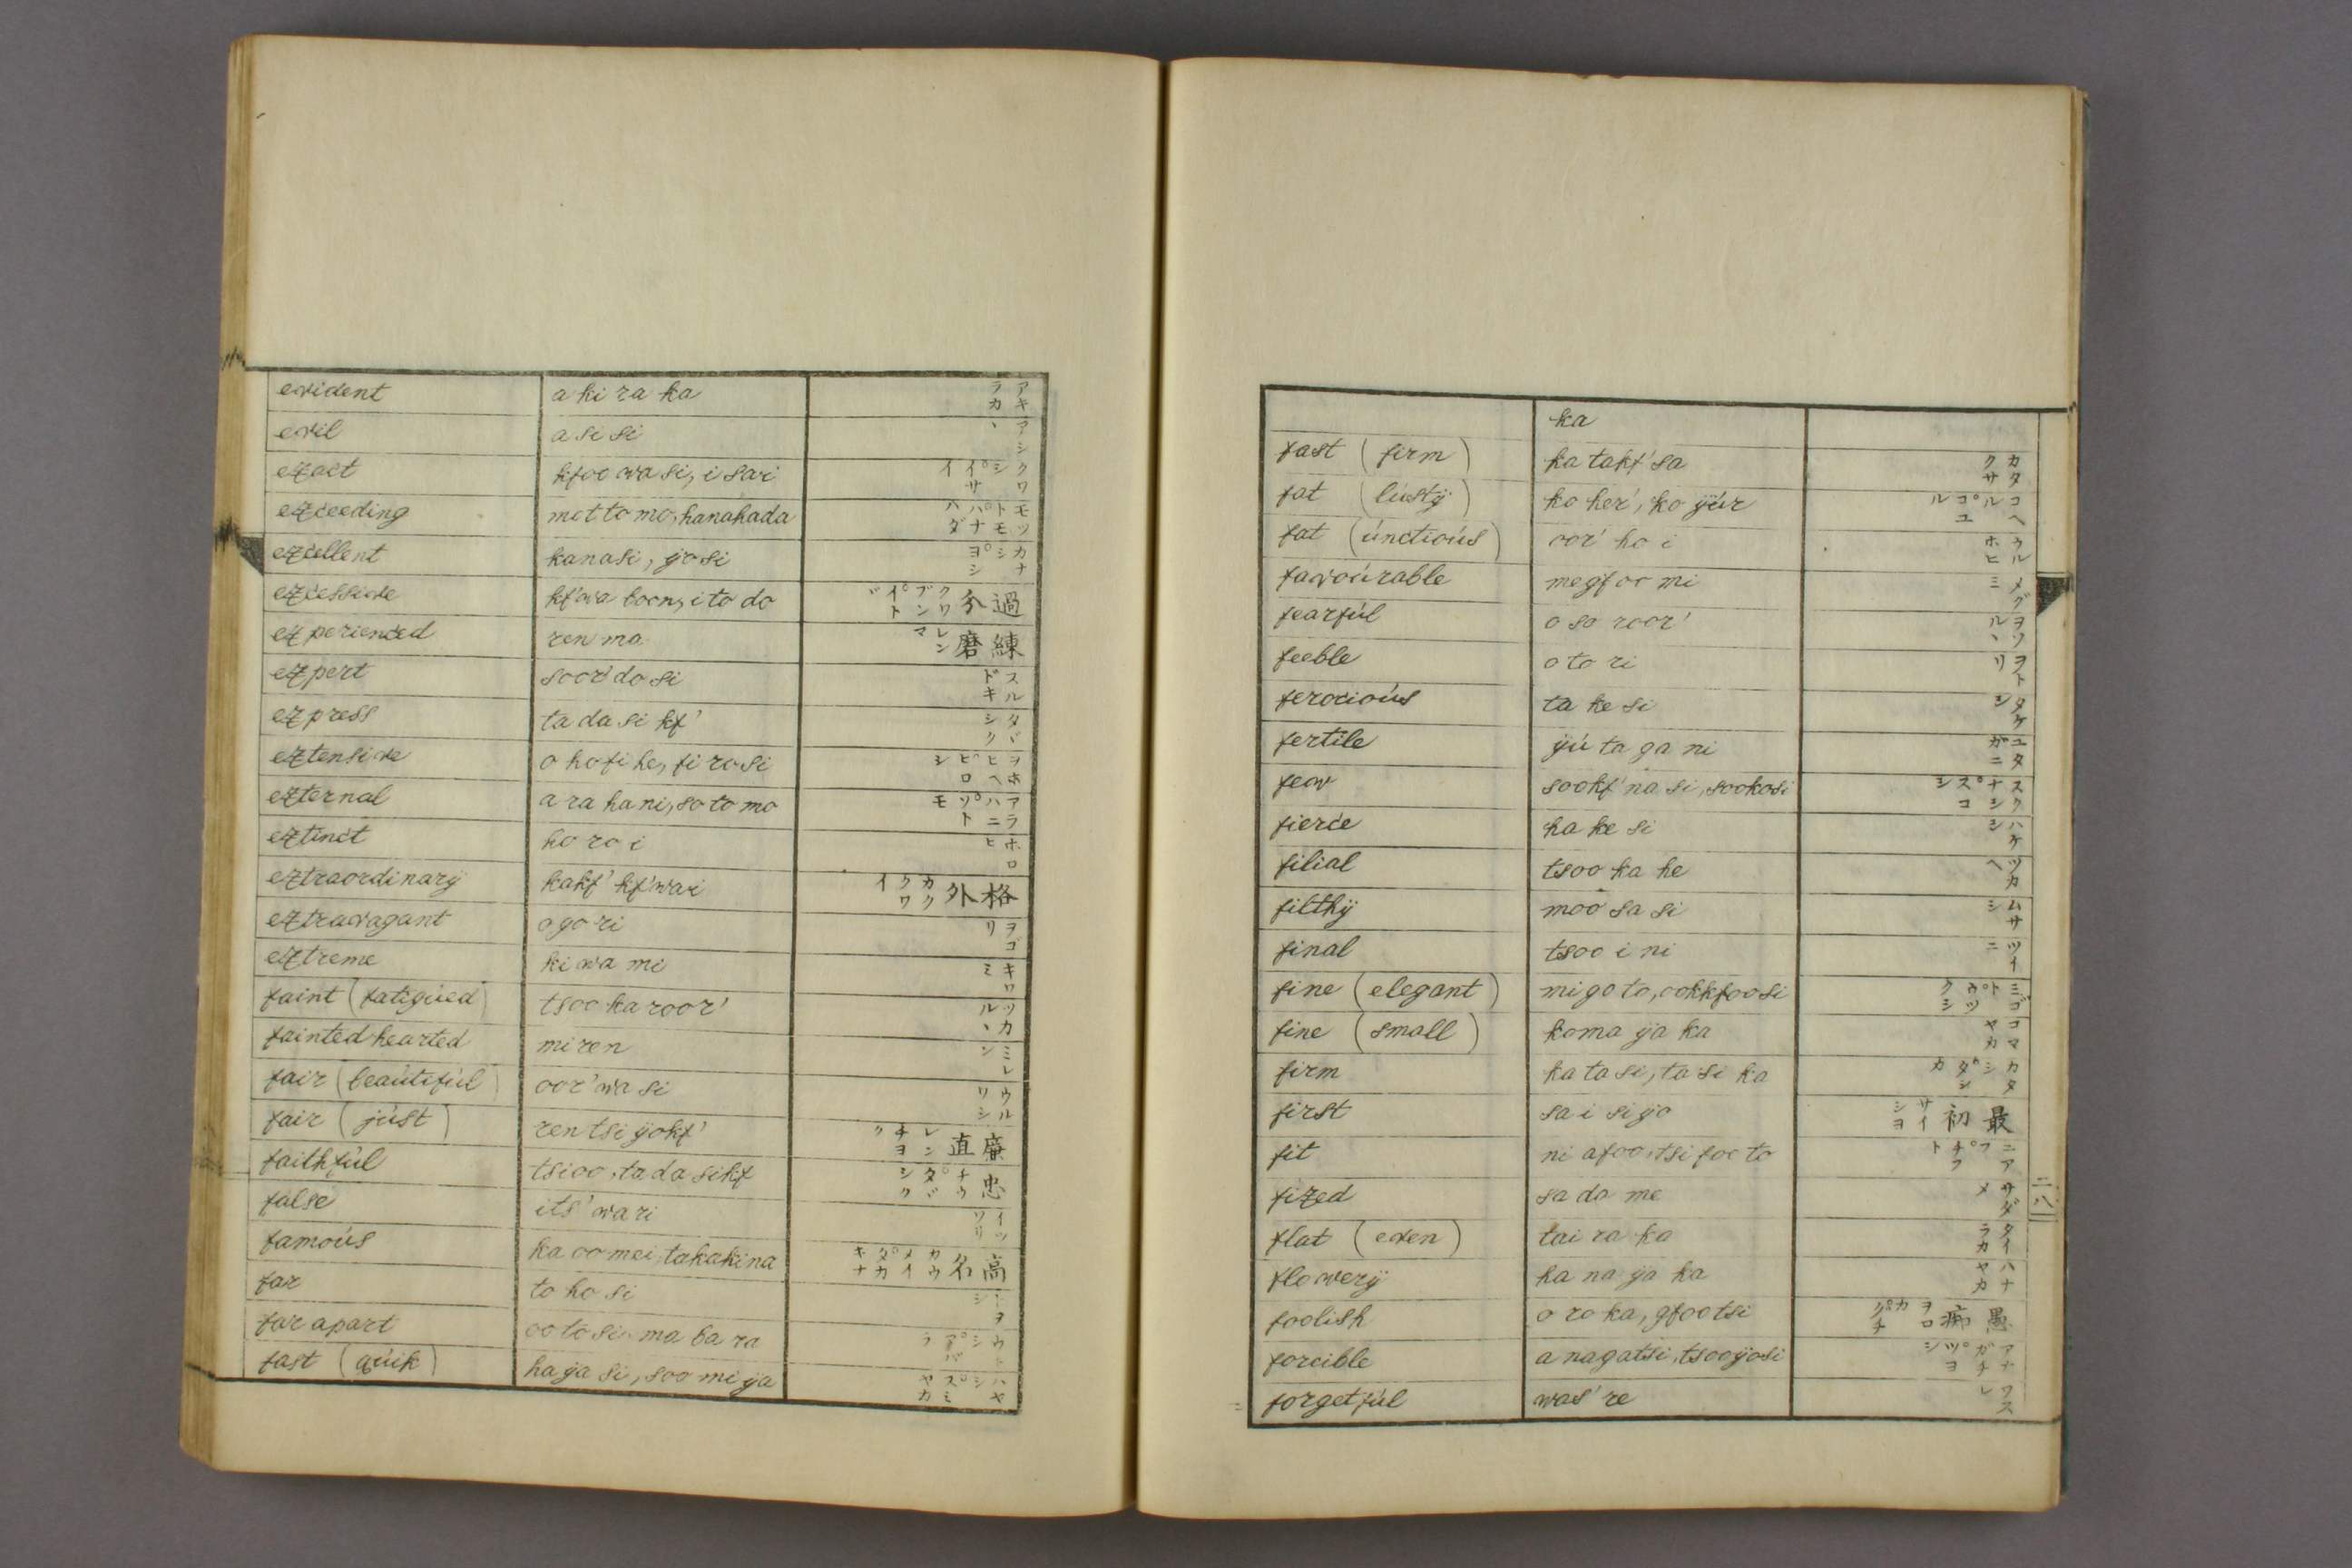 evident a ki ra ka アキラカ
evil a si si アシヽ
exact kfoo wa si, i sai クワシイサイ
exceeding mot to mo, hanahada モツトモハナハダ
excellent kanasi, yosi カナシヨシ
excessive kf'wa boon, ito do 過分 クワブンイトヾ
experienced ren ma 練磨 レンマ
expert soor' do si スルドキ
express ta da si kf' タヾシク
extensive o ho fi he, fi ro si ヲホヒヘヒロシ
external a ra ha ni, so to mo アラハニソトモ
extinct ho ro i ホロヒ
extraordinarÿ kakf' kf'wai 格外 カククワイ
extravagant o go ri ヲゴリ
extreme ki wa mi キワミ
faint (fatigúed) tsoo ka roor' ツカルヽ
fainted hearted mi ren ミレン
fair (beaútifúl) oor' wa si ウルワシ
fair (júst) ren tsi ÿokf' 廉直 レンチヨク
faithfúl tsioo, ta da sikf 忠 チウタヾシク
false its' wa ri イツワリ
famoús ka oo mei, takakina 高名 カウメイタカキナ
far to ho si トヲシ
far apart oo to si ma ba ra ウトシマバラ
fast (qúik) ha ÿa si, soo mi ÿa ハヤシスミヤカ
ka
fast (firm) ka takf' sa カタクサ
fat (lústÿ) ko her', ko ÿúr コヘルコユル
fat (únctioús) oor' ho i ウルホヒ
favoúrable megf oo mi メグミ
fearfúl o so roor' ヲソルヽ
feeble o to ri ヲトリ
ferocioús ta ke si タケシ
fertile ÿú ta ga ni ユタガニ
few sookf' na si, sookosi スクナシスコシ
fierce ha ke si ハケシ
filial tsoo ka he ツカヘ
filthÿ moo sa si ムサシ
final tsoo i ni ツイニ
fine (elegant) mi go to, ookkfoo si ミゴトウツクシ
fine (small) koma ÿa ka コマヤカ
firm ka ta si, ta si ka カタシタシカ
first sa i si ÿo 最初 サイシヨ
fit ni afoo, tsi foo to ニアフチフト
fixed sa da me サダメ
flat (even) tai ra ka タイラカ
flowerÿ ha na ÿa ka ハナヤカ
foolish o ro ka, gfootsi 愚痴 ヲロカグチ
forcible a nagatsi, tsooÿosi アナガチツヨシ
forgetfúl was' re ワスレ
二八